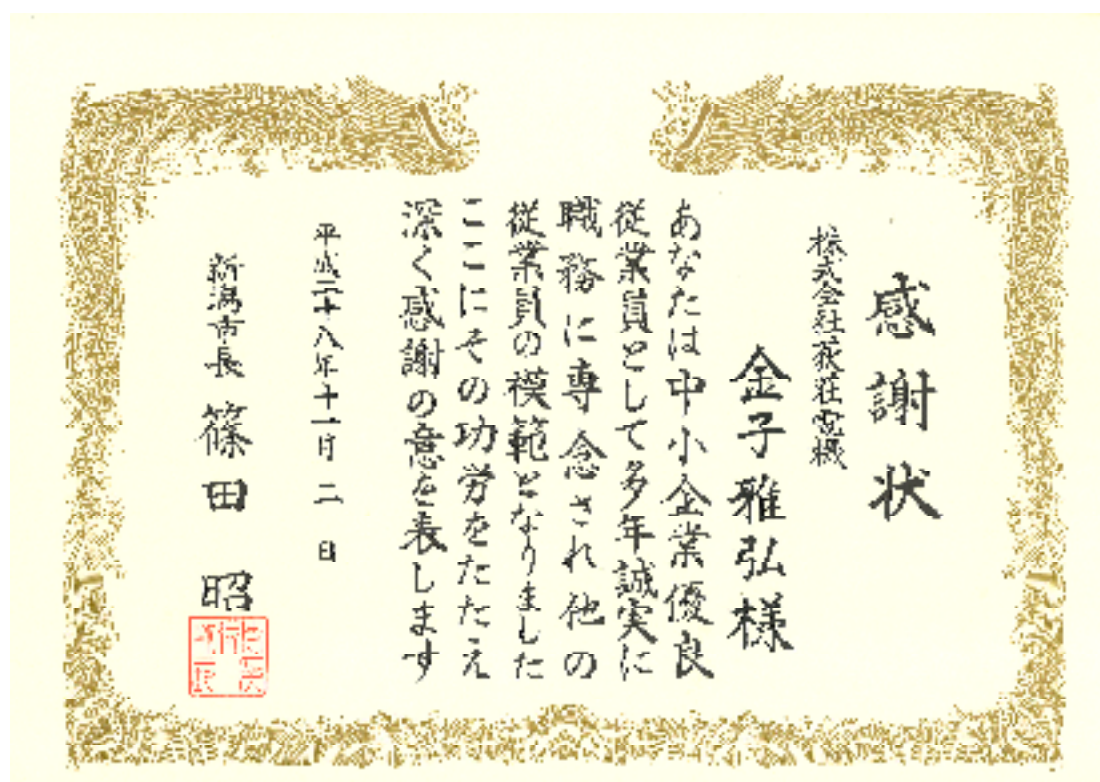 感謝状
株式会社荻荘電機
金子雅弘様
あなたは中小企業優良
従業員として多年誠実に
職務に専念され他の
従業員の模範となりました
ここにその功労をたたえ
深く感謝の意を表します
平成二十八年十一月二日
新潟市長 篠田 昭